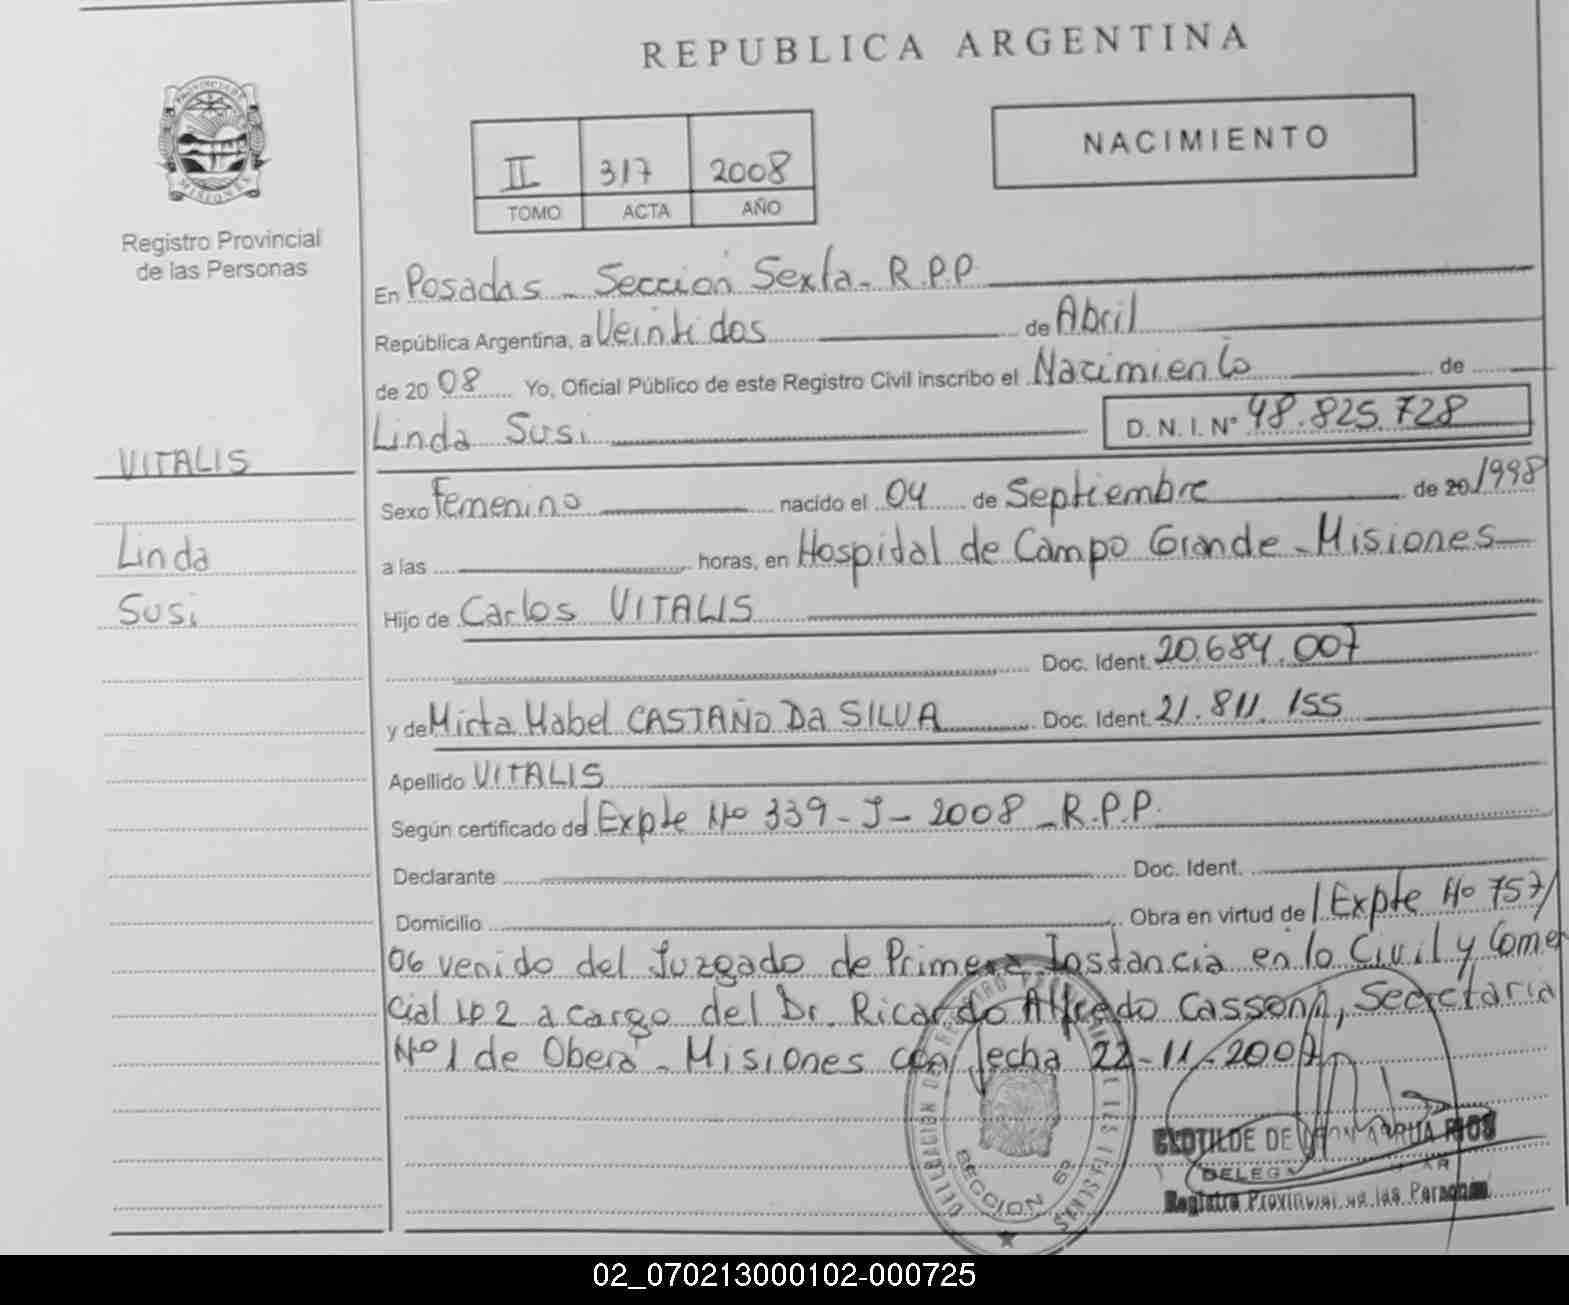 REPUBLICA ARGENTINA
PROVINCIA DE MISIONES
Registro Provincial
de las Personas
II 317 2008
TOMO ACTA AÑO
NACIMIENTO
En Posadas - Sección Sexta - R.P.P
República Argentina, a Veintidos de Abril
de 2008 Yo, Oficial Público de este Registro Civil inscribo el Nacimiento de
Linda Susi D. N. I. N° 48.825.728
VITALIS
Sexo Femenino nacido el 04 de Septiembre de 20/1998
Linda
a las horas, en Hospital de Campo Grande - Misiones
Susi
Hijo de Carlos VITALIS
Doc. Ident. 20.684.007
y de Mirta Mabel CASTAÑO Da SILVA Doc. Ident. 21.811.155
Apellido VITALIS
Según certificado del Expte Nº 339-J-2008 - R.P.P.
Declarante Doc. Ident.
Domicilio Obra en virtud de / Expte Nº 757/
06 venido del Juzgado de Primera Instancia en lo Civil y Comer
cial Nº 2 a cargo del Dr. Ricardo Alfredo Casson, Secretaria
Nº 1 de Oberá - Misiones con fecha 22-11-2007
SECCION 6ª
CLOTILDE DE RIOS
Registro Provincial de las Personas
02_070213000102-000725